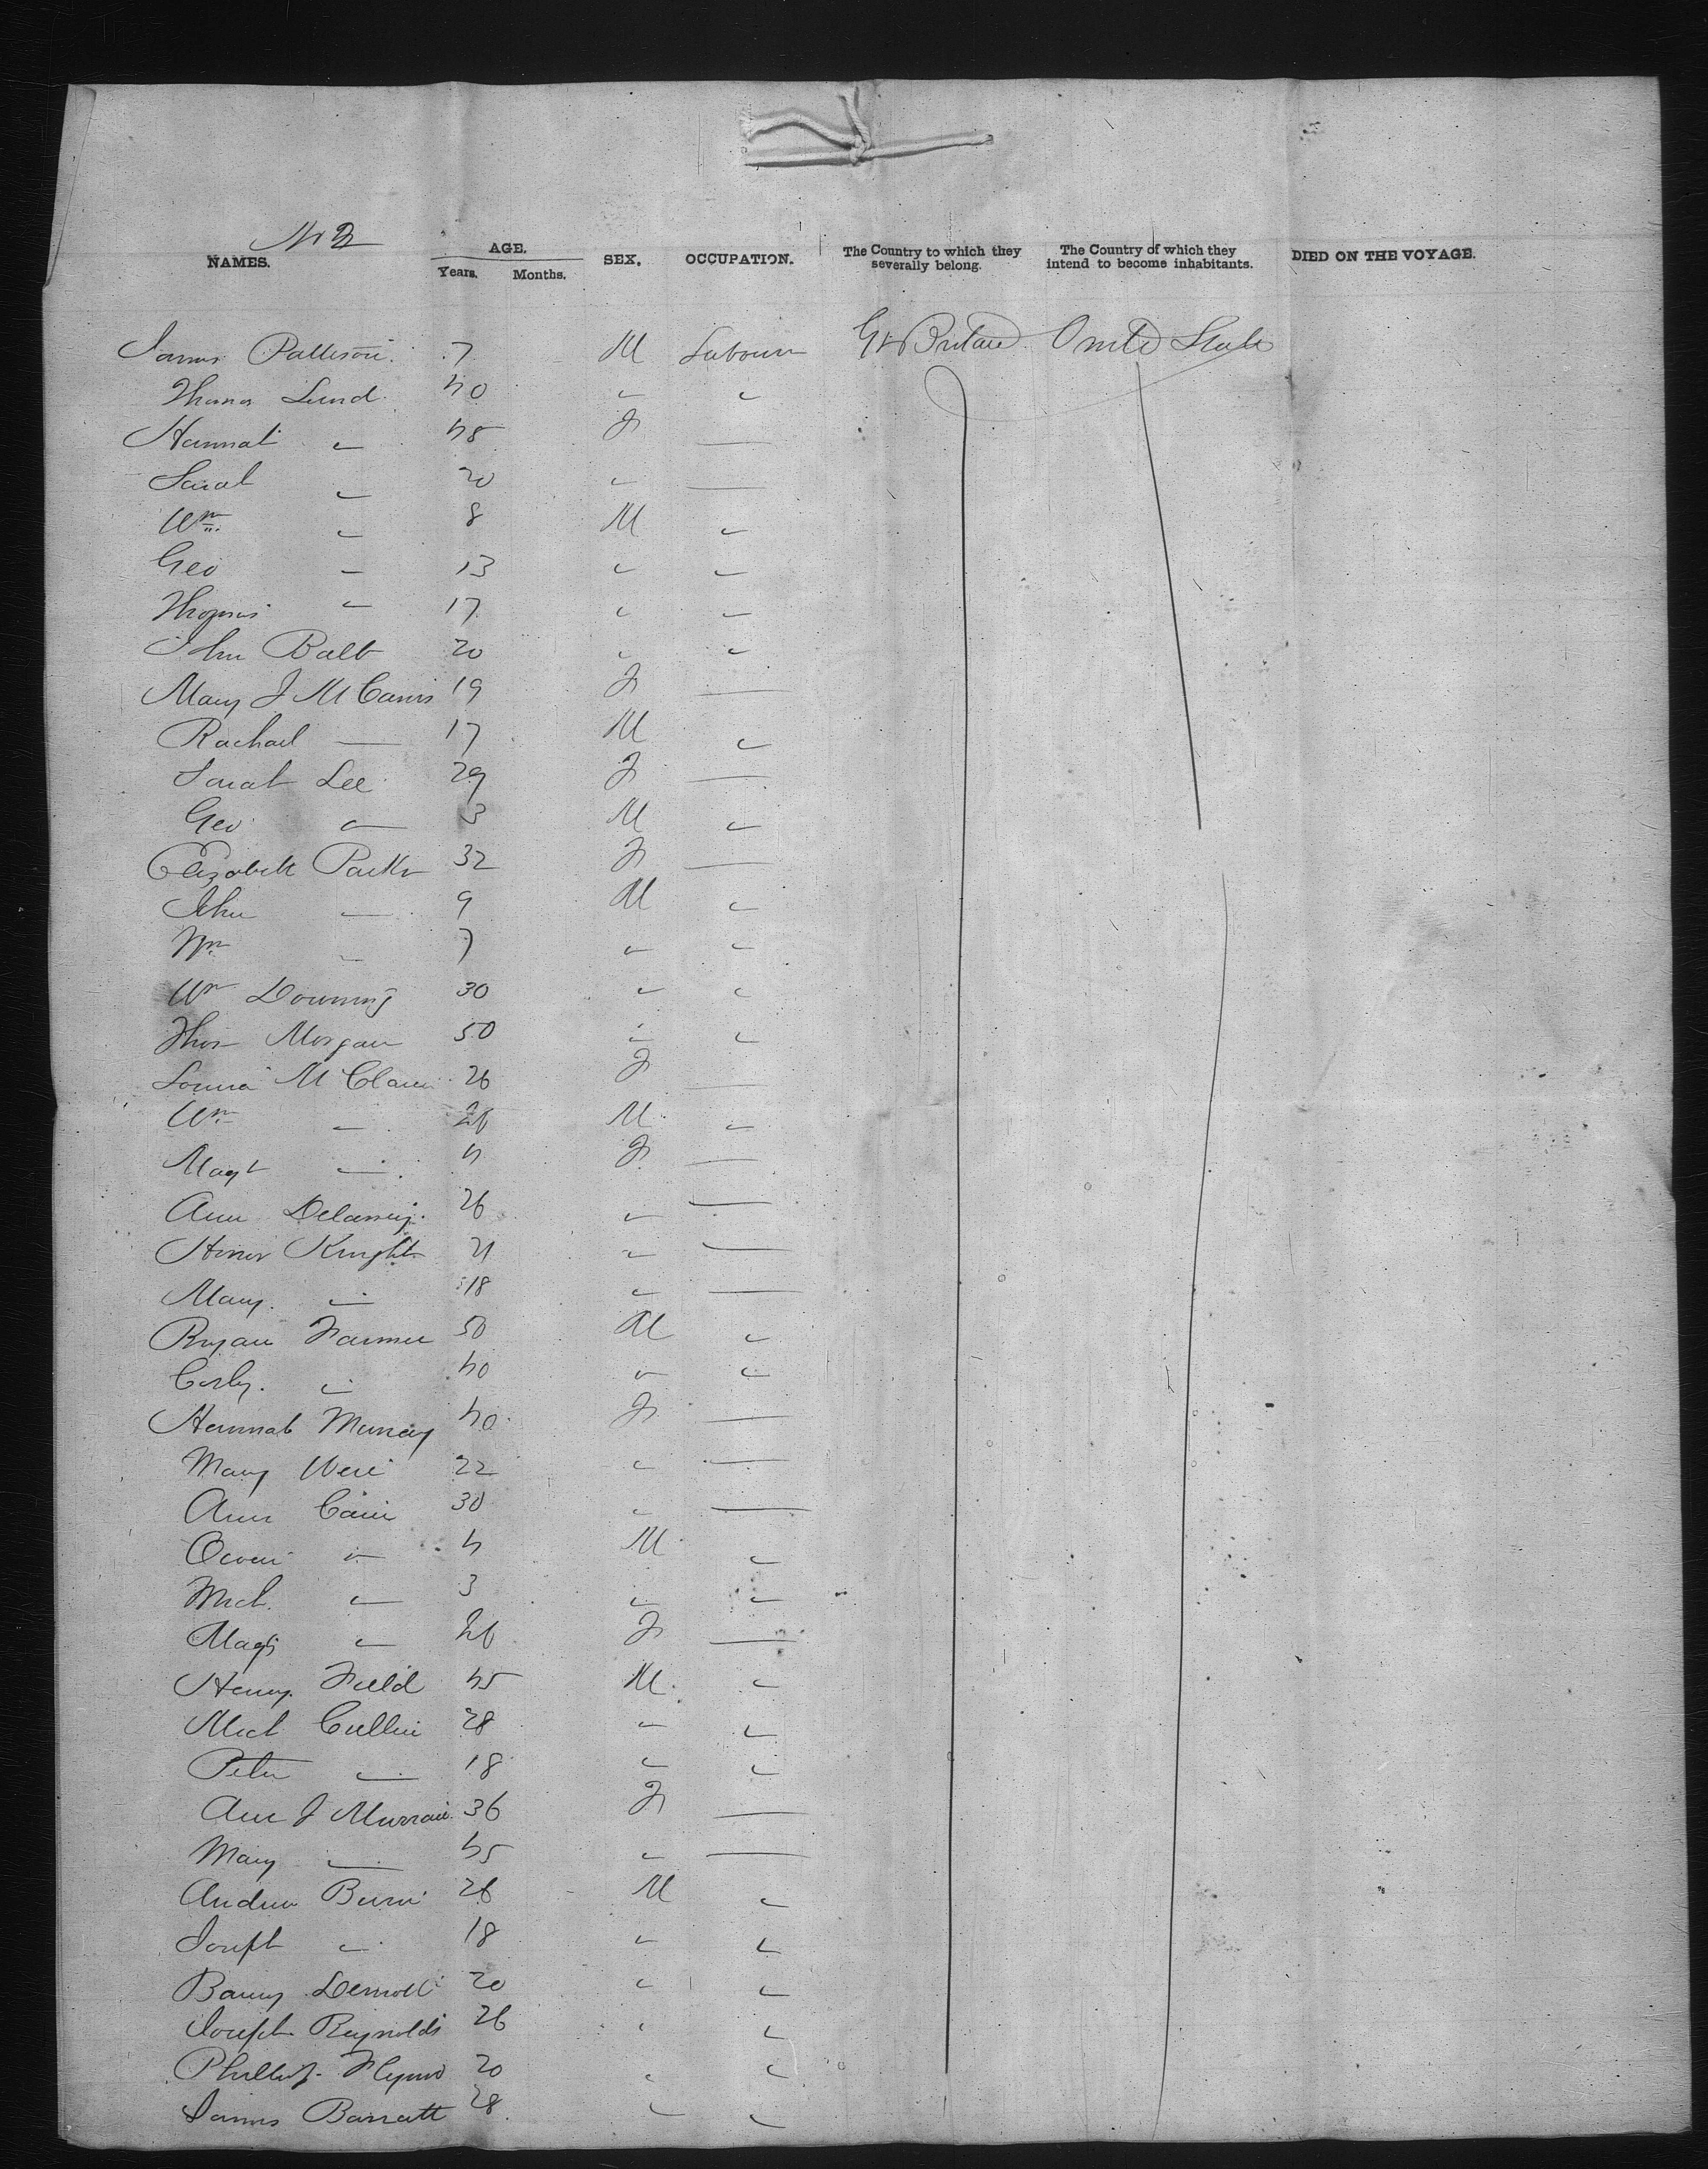 No 2
NAMES. AGE. Years. Months. SEX. OCCUPATION. The Country to which they severally belong. The Country of which they intend to become inhabitants. DIED ON THE VOYAGE.
James Pattison 7 M Labourer Gt Britain United States
Thomas Lund 40 " "
Hannah " 48 F —
Sarah " 20 " —
Wm " 8 M "
Geo " 13 " "
Thomas " 17 " "
John Balt 20 " "
Mary J 19 F —
Rachael — 17 M "
Sarah Lee 29 F —
Geo " 3 M "
Elizabeth Parker 32 F —
John — 9 M "
Wm " 7 " "
Wm Downing 30 " "
Thos Morgan 50 " "
26 F —
Wm — 26 M "
Magt — 4 F —
Ann Delaney 26 " —
Honor Knight 21 " —
Mary " 18 " —
Bryan Farmer 50 M "
" 40 " "
Hannah Murray 40 F —
Mary Weir 22 " —
Ann Cain 30 " —
Owen " 4 M "
Mich " 3 " "
Magt " 26 F —
Henry Field 45 M "
Mich Cullin 28 " "
Peter " 18 " "
Ann J 36 F —
Mary " 45 " —
Andrew 26 M "
Joseph " 18 " "
Barny Dermott 20 " "
Joseph Reynolds 26 " "
Phillip Flynn 20 " "
James Barratt 28 " "